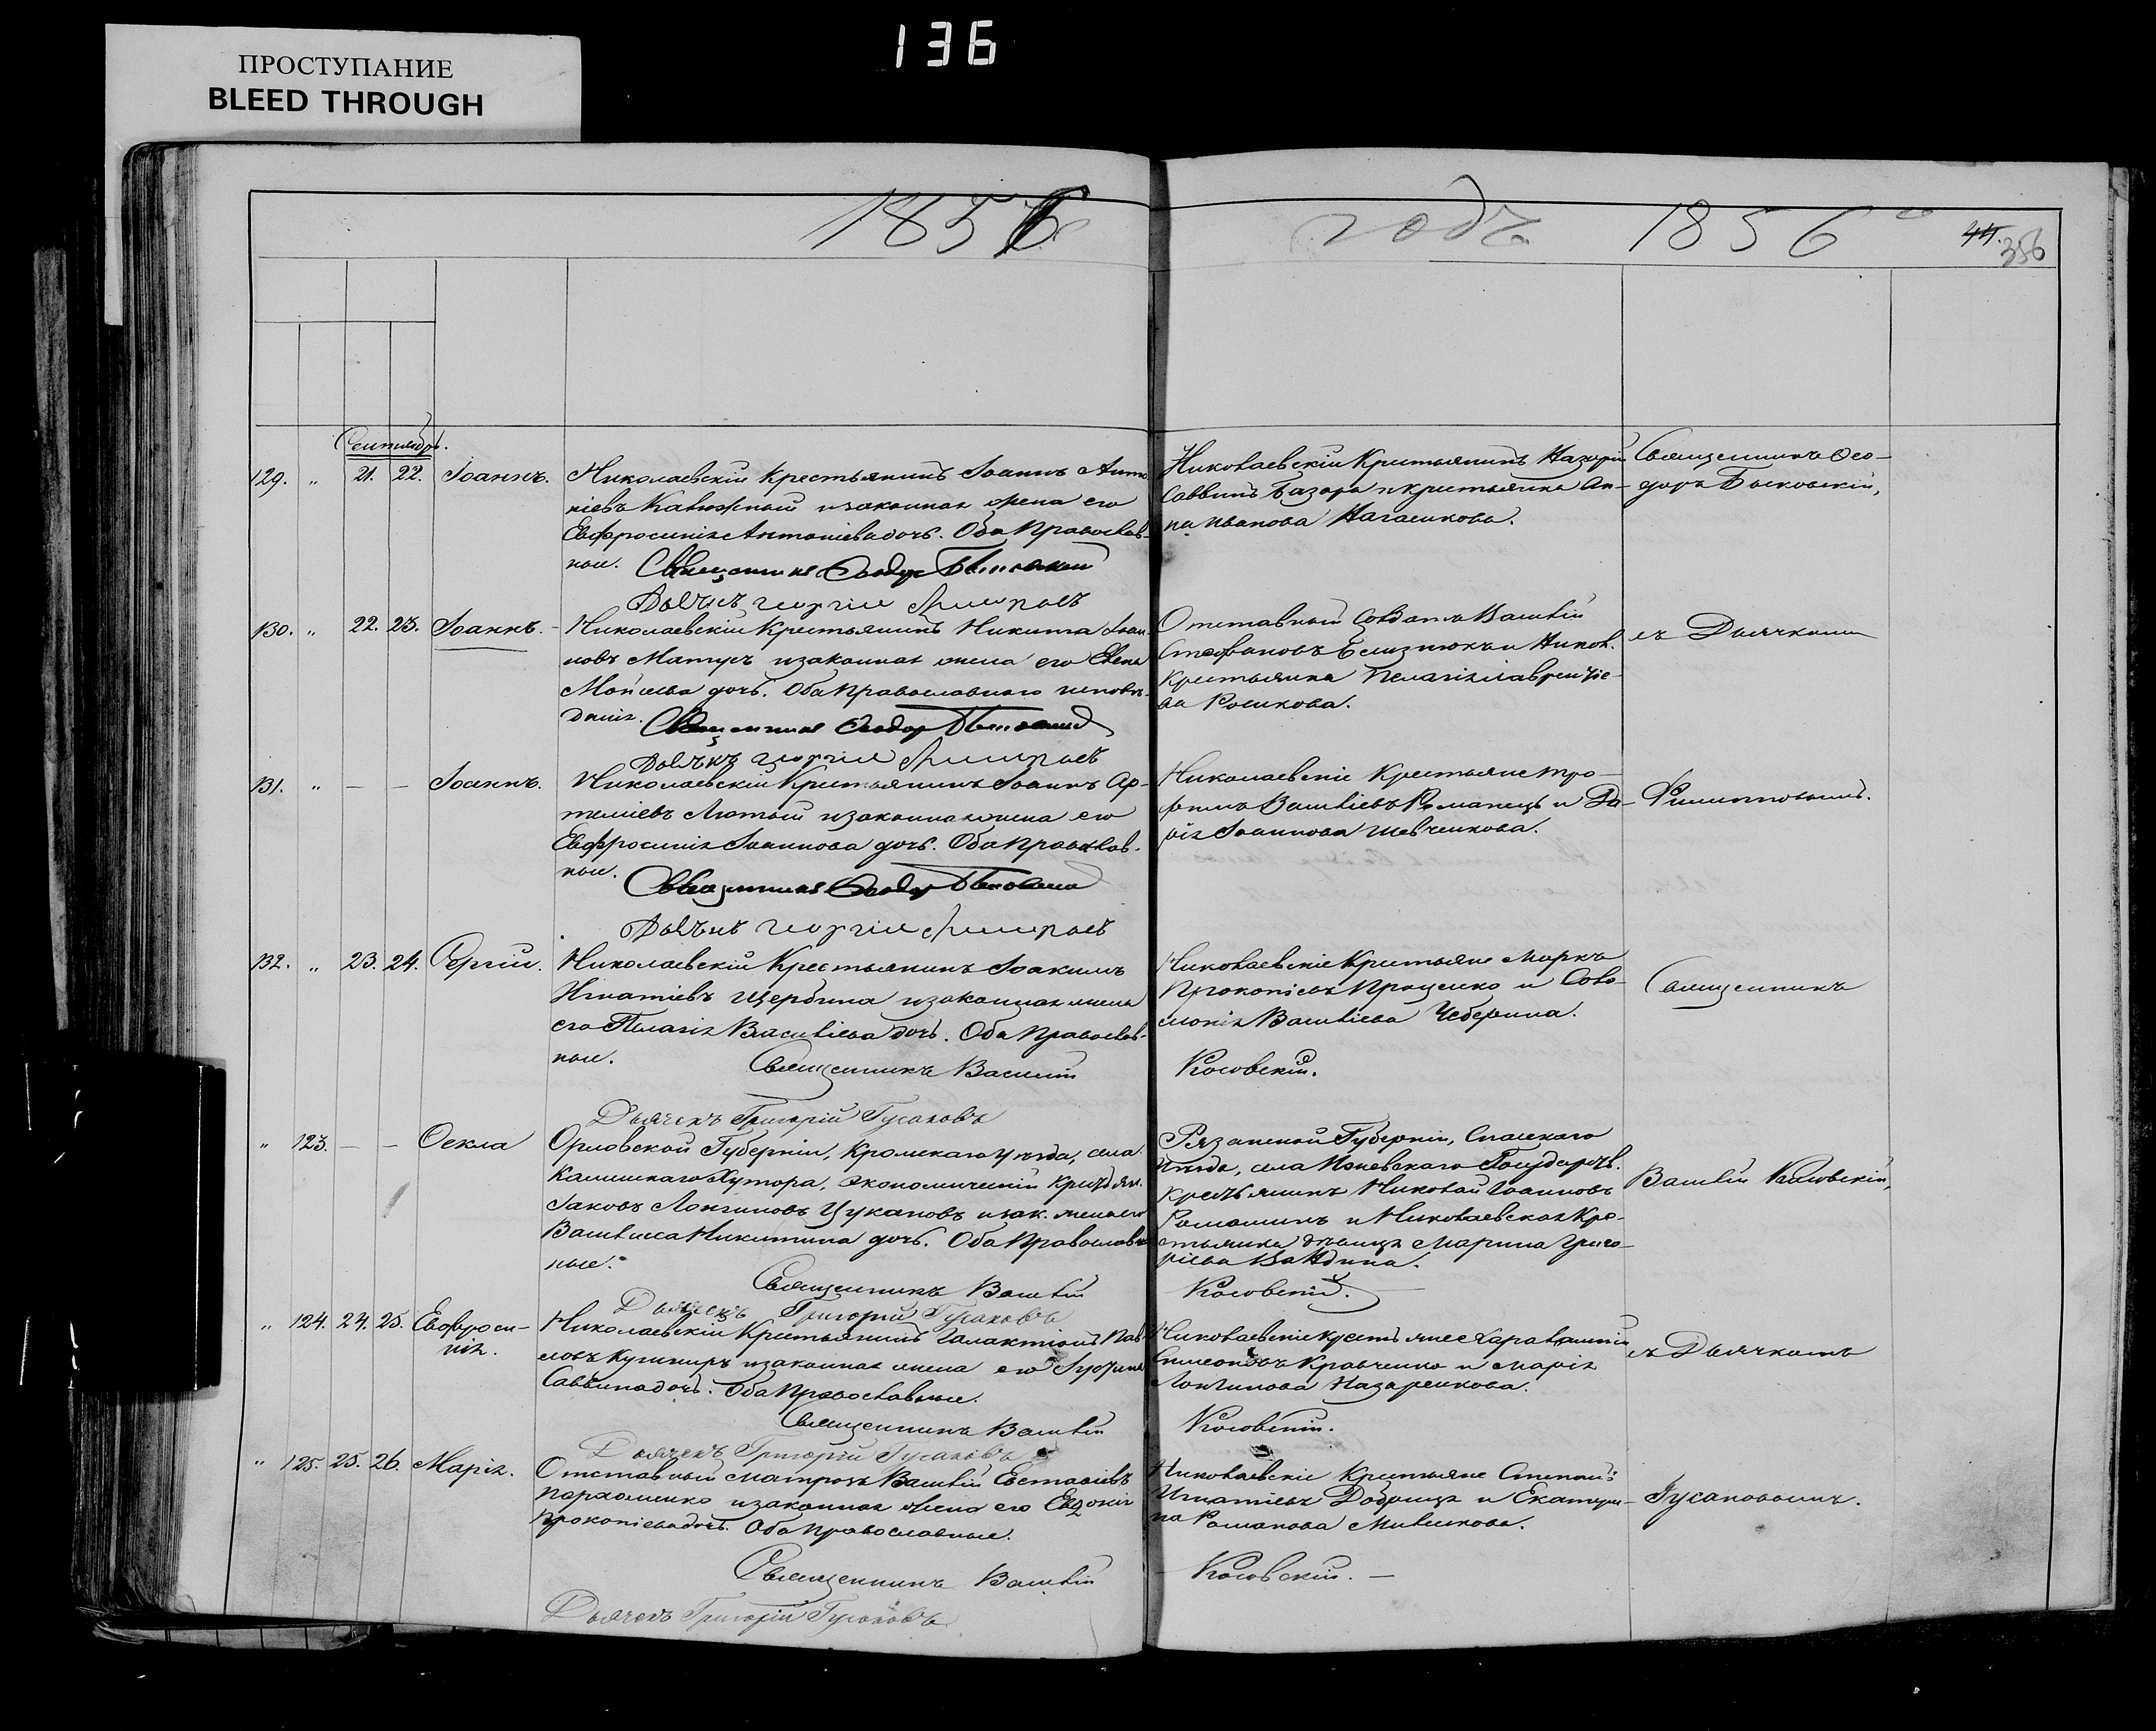 136
ПРОСТУПАНИЕ
BLEED THROUGH
1856
годъ 1856
44. 356
Сентябрь.
129. " 21. 22. Іоаннъ.
Николаевскій Крестьянинъ Іоаннъ Анто
ніевъ изаконная жена его
Евфросинія Антоніева дочь. Оба Православ-
ные. Священникъ Ѳеодоръ
Дьячекъ Георгіи
Николаевскіи Крестьянинъ Назарій
Саввинъ Базара икрестьянка Ан-
на Иванова
Священникъ Ѳео-
доръ
130. " 22. 23. Іоаннъ.
Николаевскіи Крестьянинъ Никита Іоан-
новъ Матусъ изаконная жена его Елена
Моисеева дочь. Оба Православнаго исповѣ-
данія. Священникъ Ѳеодоръ
Дьячекъ Георгіи
Отставный Солдатъ Василій
Стефановъ и Никол.
Крестьянка Пелагія Лаврентіе-
ва
съ Дьячкомъ
131. " — — Іоаннъ.
Николаевскіи Крестьянинъ Іоаннъ Ар-
теміевъ Лютый изаконная жена его
Евфросинія Іоаннова дочь. Оба Православ-
ные. Священникъ Ѳеодоръ
Дьячекъ Георгіи
Николаевскіе Крестьяне Тро-
фимъ Василіевъ Романецъ и Да-
рія Іоаннова Шевченкова.
132. " 23. 24. Сергіи.
Николаевскій Крестьянинъ Іоакимъ
Игнатіевъ Щербина изаконная жена
его Пелагія Василіева дочь. Оба Православ-
ные.
Священникъ Василій
Дьячекъ Григорій Гусаковъ
Николаевскіе Крестьяне Марко
Прокопіевъ Проценко и Соло-
монія Василіева Чеберина.
Косовскій.
Священникъ
" 123. — — Ѳекла
Орловской Губерніи, Кромскаго уѣзда, села
Хутора, экономическій Крестьян.
Іаковъ Лонгиновъ Цукановъ изак. жена его
Василиса Никитина дочь. Оба Православ-
ные.
Священникъ Василій
Дьячекъ Григорій Гусаковъ
Рязанской Губерніи, Спасскаго
Уѣзда, села Государств.
крестьянинъ Николай Іоанновъ
Ромашинъ и Николаевская Кре-
стьянка дѣвица Марина Григо-
ріева
Косовскій.
Василій Косовскій,
" 124. 24. 25. Евфроси-
нія.
Николаевскіи Крестьянинъ Галактіонъ Пав-
ловъ изаконная жена его
Саввина дочь. Оба Православные.
Священникъ Василій
Дьячекъ Григорій Гусаковъ
Николаевскіе Крестьяне Харалампій
Симеоновъ Кравченко и Марія
Лонгинова Назаренкова.
Косовскій.
съ Дьячкомъ
" 125. 25. 26. Марія.
Отставный матрозъ Василій Евстафіевъ
Пархоменко изаконная жена его Евдокія
Прокопіева дочь. Оба Православные.
Священникъ Василій
Дьячекъ Григорій Гусаковъ
Николаевскіе Крестьяне Степанъ
Игнатіевъ Добрица и Екатери-
на Романова
Косовскій. —
Гусаковымъ.